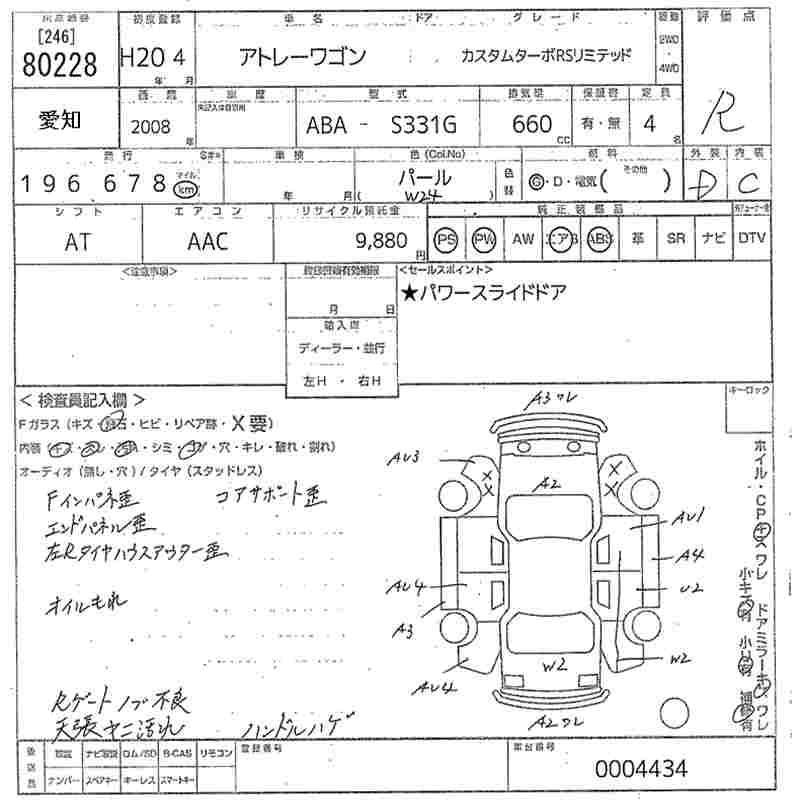 初度登録 車名 ドア グレード 評価点
[246]
80228 H20 4 アトレーワゴン カスタムターボRSリミテッド 2WD 4WD
年 月
車歴 型式 排気量 保証書 定員
愛知 2008 年 ABA - S331G 660 CC 有・無 4 名 R
走行 車検 色(Col.No) 燃料 外装 内装
196678 マイル km 年 月 パール (W24) 色替 G・D・電気( その他 ) D C
シフト エアコン リサイクル預託金 純正装備品
AT AAC 9,880円 PS PW AW エアB ABS 革 SR ナビ DTV
<注意事項> 登録書類有効期限 <セールスポイント>
月 日 ★パワースライドドア
輸入車
ディーラー・並行
左H・右H
<検査員記入欄> キーロック
Fガラス(キズ・飛石・ヒビ・リペア跡・X要)
内装(キズ・・シミ・・穴・キレ・破れ・割れ)
オーディオ(無し・穴)/タイヤ(スタッドレス)
Fインパネ歪 コアサポート歪
エンドパネル歪
左Rタイヤハウスアウター歪
オイルもれ
Rゲートノブ不良
天張ヤニ汚れ ハンドルハゲ
A3ワレ
AU3
A2
AU1
A4
AU4
U2
A3
W2
W2
AU4
A2ワレ
ホイルCPキズワレ
ドアミラーキズワレ
小キズ有 小凹有 補修有
後送品 取説 ナビ取説 ロム/SD B-CAS リモコン 登録番号 車台番号
ナンバー スペアキー キーレス スマートキー 0004434